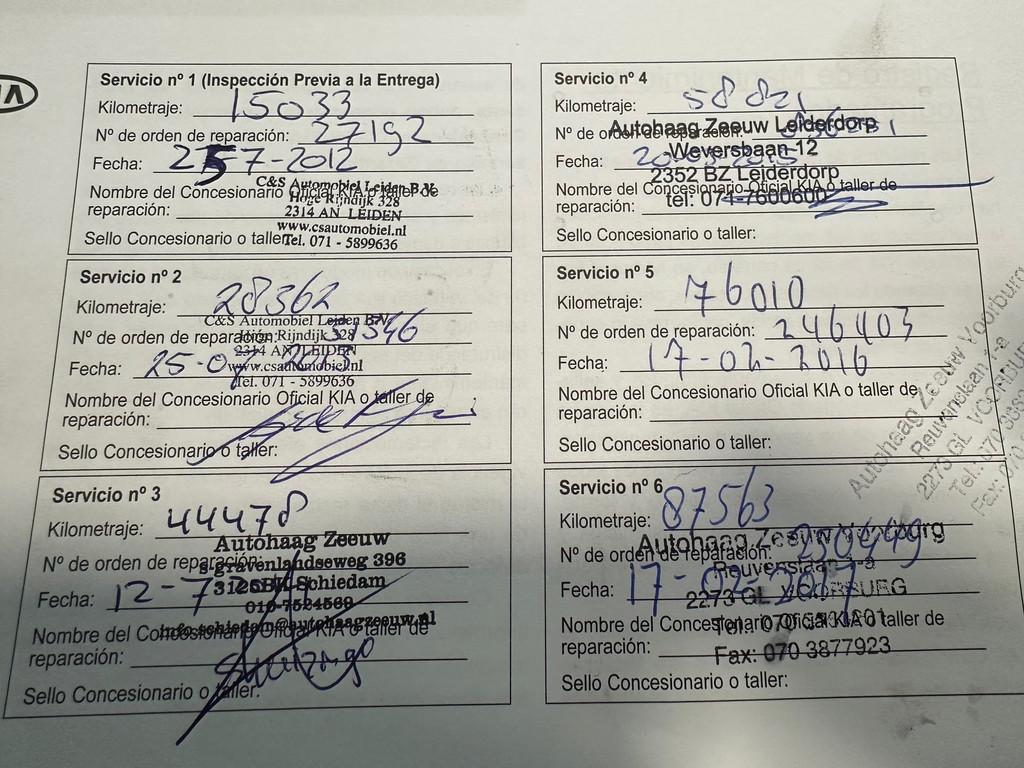 Servicio nº 1 (Inspección Previa a la Entrega)
Kilometraje: 15033
Nº de orden de reparación: 27192
Fecha: 25-7-2012
C&S Automobiel Leiden B.V.
Nombre del Concesionario Oficial KIA o taller de
Hoge Rijndijk 328
reparación:
2314 AN LEIDEN
www.csautomobiel.nl
Sello Concesionario o taller:
Tel. 071 - 5899636
Servicio nº 2
Kilometraje: 28362
C&S Automobiel Leiden B.V.
Nº de orden de reparación:
Hoge Rijndijk 328
2314 AN LEIDEN
Fecha: 25-
www.csautomobiel.nl
Tel. 071 - 5899636
Nombre del Concesionario Oficial KIA o taller de
reparación:
Sello Concesionario o taller:
Servicio nº 3
Kilometraje: 44478
Autohaag Zeeuw
Nº de orden de reparación:
s-gravenlandseweg 396
Schiedam
Fecha: 12-7-
info.schiedam@autohaagzeeuw.nl
Nombre del Concesionario Oficial KIA o taller de
reparación:
Sello Concesionario o taller:
Servicio nº 4
Kilometraje: 58821
Autohaag Zeeuw Leiderdorp
Nº de orden de reparación:
Weversbaan 12
Fecha:
2352 BZ Leiderdorp
Nombre del Concesionario Oficial KIA o taller de
tel: 071-7600600
reparación:
Sello Concesionario o taller:
Servicio nº 5
Kilometraje: 76010
Nº de orden de reparación: 246403
Fecha: 17-02-2016
Nombre del Concesionario Oficial KIA o taller de
reparación:
Sello Concesionario o taller:
Autohaag Zeeuw Voorburg
Reuvenslaan 1-a
2273 GL VOORBURG
Tel.: 070
Fax: 070
Servicio nº 6
Kilometraje: 87563
Autohaag Zeeuw Voorburg
Nº de orden de reparación:
Reuvenslaan 1-a
Fecha: 17-
2273 GL VOORBURG
Nombre del Concesionario Oficial KIA o taller de
Tel.: 070
reparación:
Fax: 070 3877923
Sello Concesionario o taller: